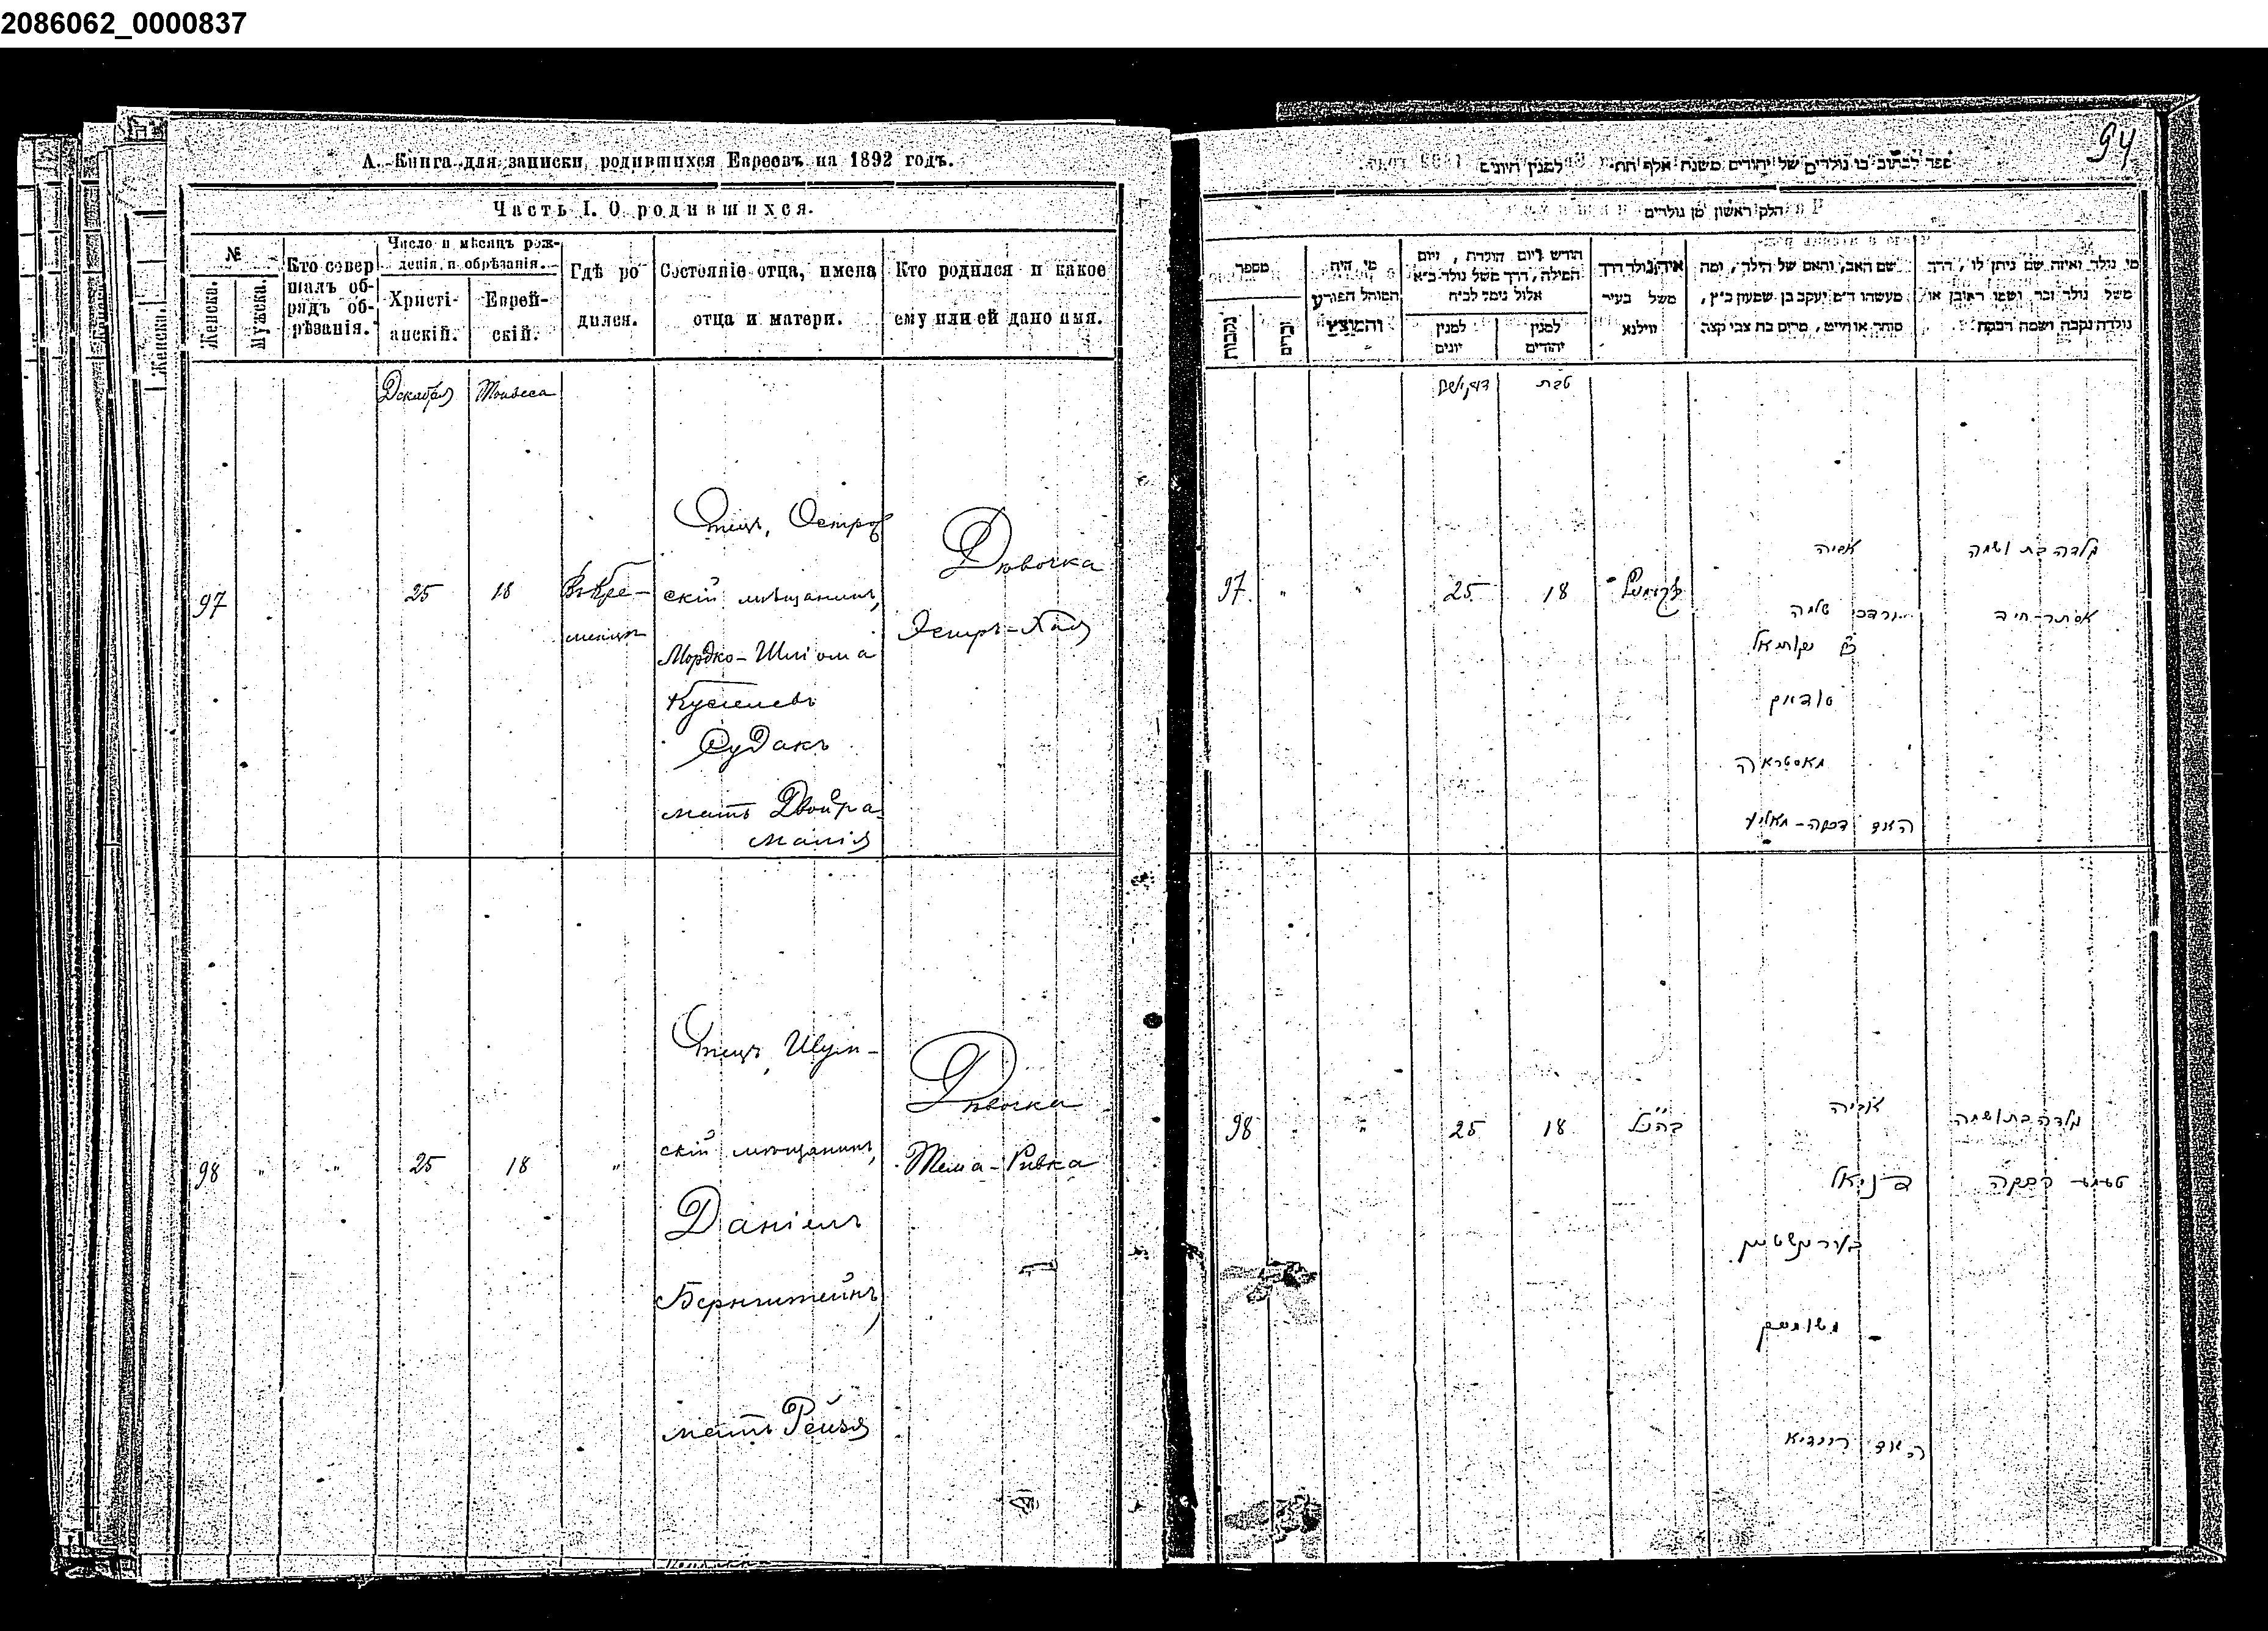 2086062_0000837
А. Книга для записки родившихся Евреевъ на 1892 годъ.
Часть I. О родившихся.
№
Женска.
Мужска.
Кто совер
шалъ об-
рядъ об-
рѣзанія.
Число и мѣсяцъ рож-
денія и обрѣзанія.
Христі-
анскій.
Еврей-
скій.
Гдѣ ро
дился.
Состояніе отца, имена
отца и матери.
Кто родился и какое
ему или ей дано имя.
Декабря
Тейвеса
97
25
18
Въ Кре-
менцѣ
Отецъ, Остро
скій мѣщанинъ,
Мордко-Шліома
Кусіелевъ
Судакъ
мать Двойра
Малія
Дѣвочка
Эстръ-Хая
98
"
"
25
18
"
Отецъ, Шум-
скій мѣщанинъ,
Даніелъ
Бернштейнъ,
мать Рейзя
Дѣвочка
Тема-Ривка
94
ספר לכתוב בו נולדים של יהודים משנת אלף תת למנין היונים
חלק ראשון מן נולדים
מספר
נקבות
זכרים
מי היה
המוהל הפורע
והמוצץ
חודש ויום הולדת, ויום
המילה, דרך משל נולד כ״א
אלול נימול לכ״ח
למנין
יונים
למנין
יהודים
איה נולד דרך
משל בעיר
ווילנא
שם האב, והאם של הילד, ומה
מעשהו ד״מ יעקב בן שמעון כ״ץ,
סוחר או חייט, מרים בת צבי קצב
מי נולד ואיזה שם ניתן לו, דרך
משל נולד זכר ושמו ראובן או
נולדה נקבה ושמה רבקה
טבת
97
"
"
25
18
אביה
מרדכי שלמה
סודאק
נולדה בת ושמה
אסתר-חיה
98
"
"
25
18
בהנ״ל
אביה
דניאל
נולדה בת ושמה
טעמע רבקה